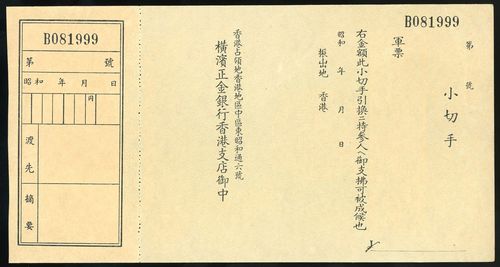 B081999
第 號
小切手
軍票
右金額此小切手引換ニ持參人ヘ御支拂可被成候也
昭和 年 月 日
振出地 香港
香港占領地香港地區中區東昭和通六號
橫濱正金銀行香港支店御中
B081999
第 號
昭和 年 月 日
円
渡先
摘要